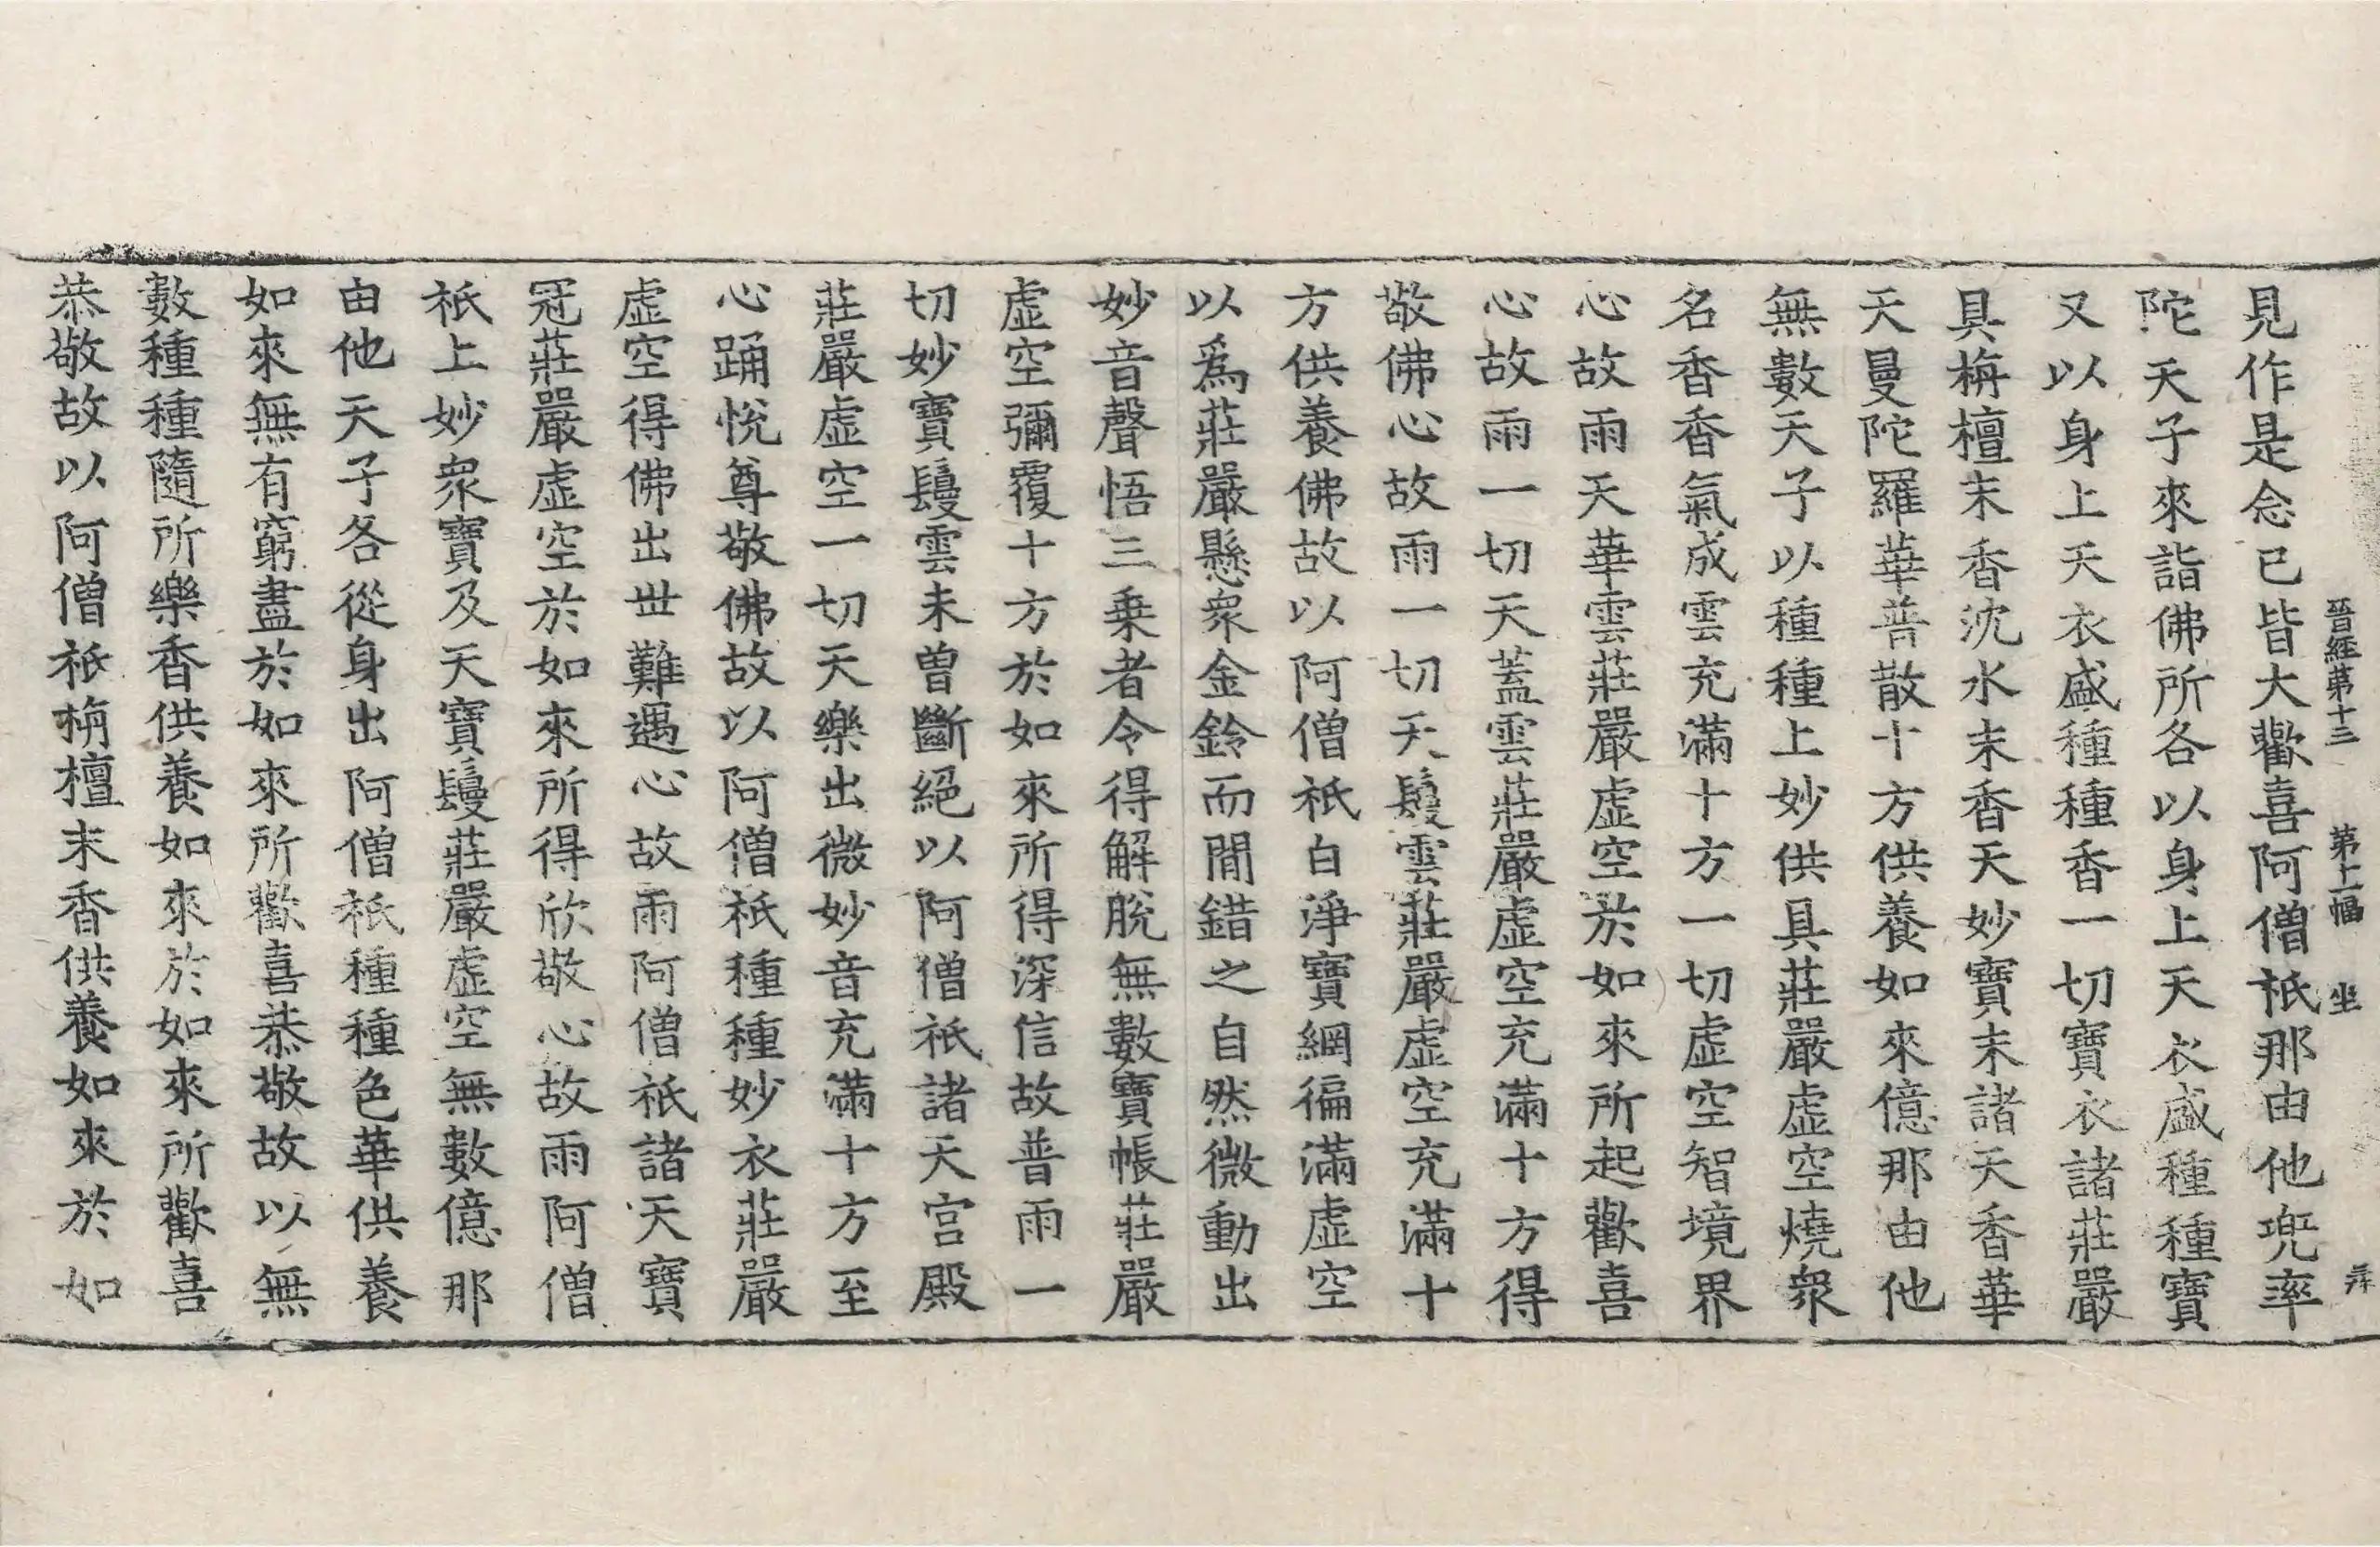 晉經第十三　第十二幅　坐　
見作是念已皆大歡喜阿僧祇那由他兜率
陀天子來詣佛所各以身上天衣盛種種寶
又以身上天衣盛種種香一切寶衣諸莊嚴
具栴檀末香沈水末香天妙寶末諸天香華
天曼陀羅華普散十方供養如來億那由他
無數天子以種種上妙供具莊嚴虛空燒衆
名香香氣成雲充滿十方一切虛空智境界
心故雨天華雲莊嚴虛空於如來所起歡喜
心故雨一切天蓋雲莊嚴虛空充滿十方得
敬佛心故雨一切天鬘雲莊嚴虛空充滿十
方供養佛故以阿僧祇白淨寶網徧滿虛空
以爲莊嚴懸衆金鈴而間錯之自然微動出
妙音聲悟三乗者令得解脫無數寶帳莊嚴
虛空彌覆十方於如來所得深信故普雨一
切妙寶鬘雲未曽斷絕以阿僧祇諸天宮殿
莊嚴虛空一切天樂出微妙音充滿十方至
心踊悅尊敬佛故以阿僧祇種種妙衣莊嚴
虛空得佛出世難遇心故雨阿僧祇諸天寶
冠莊嚴虛空於如來所得欣敬心故雨阿僧
祇上妙衆寶及天寶鬘莊嚴虛空無數億那
由他天子各從身出阿僧祇種種色華供養
如來無有窮盡於如來所歡喜恭敬故以無
數種種隨所樂香供養如來於如來所歡喜
恭敬故以阿僧祇栴檀末香供養如來於如